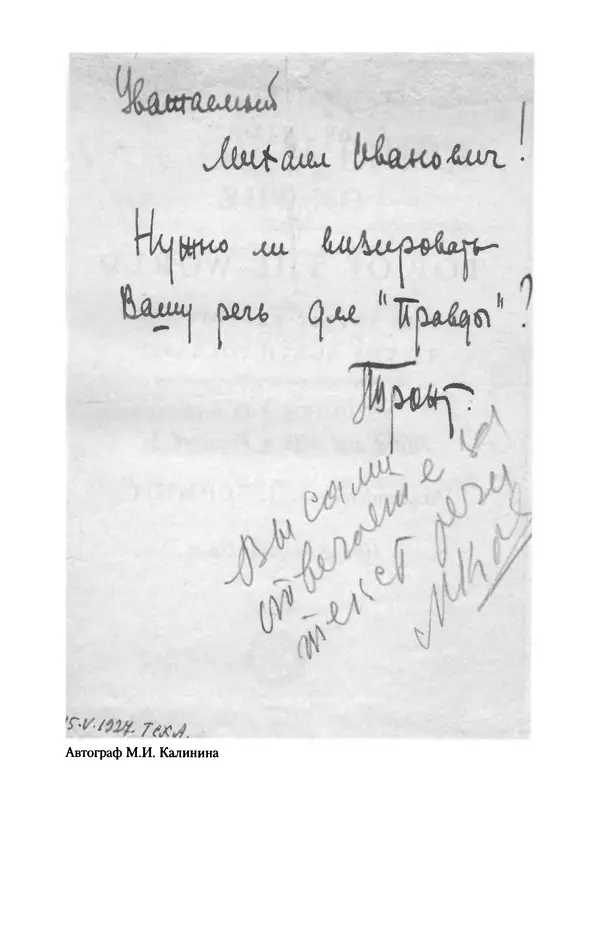 Уважаемый
Михаил Иванович!
Нужно ли визировать
Вашу речь для "Правды"?
Гронт.
Вы сами
отвечаете за
текст речи
МКал
15.V.1927. ТСКА.
Автограф М.И. Калинина